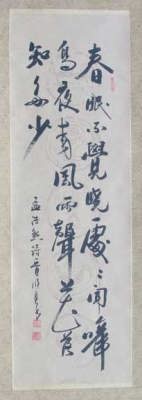 春眠不覺曉處々聞啼
鳥夜來風雨聲花落
知多少
孟浩然詩